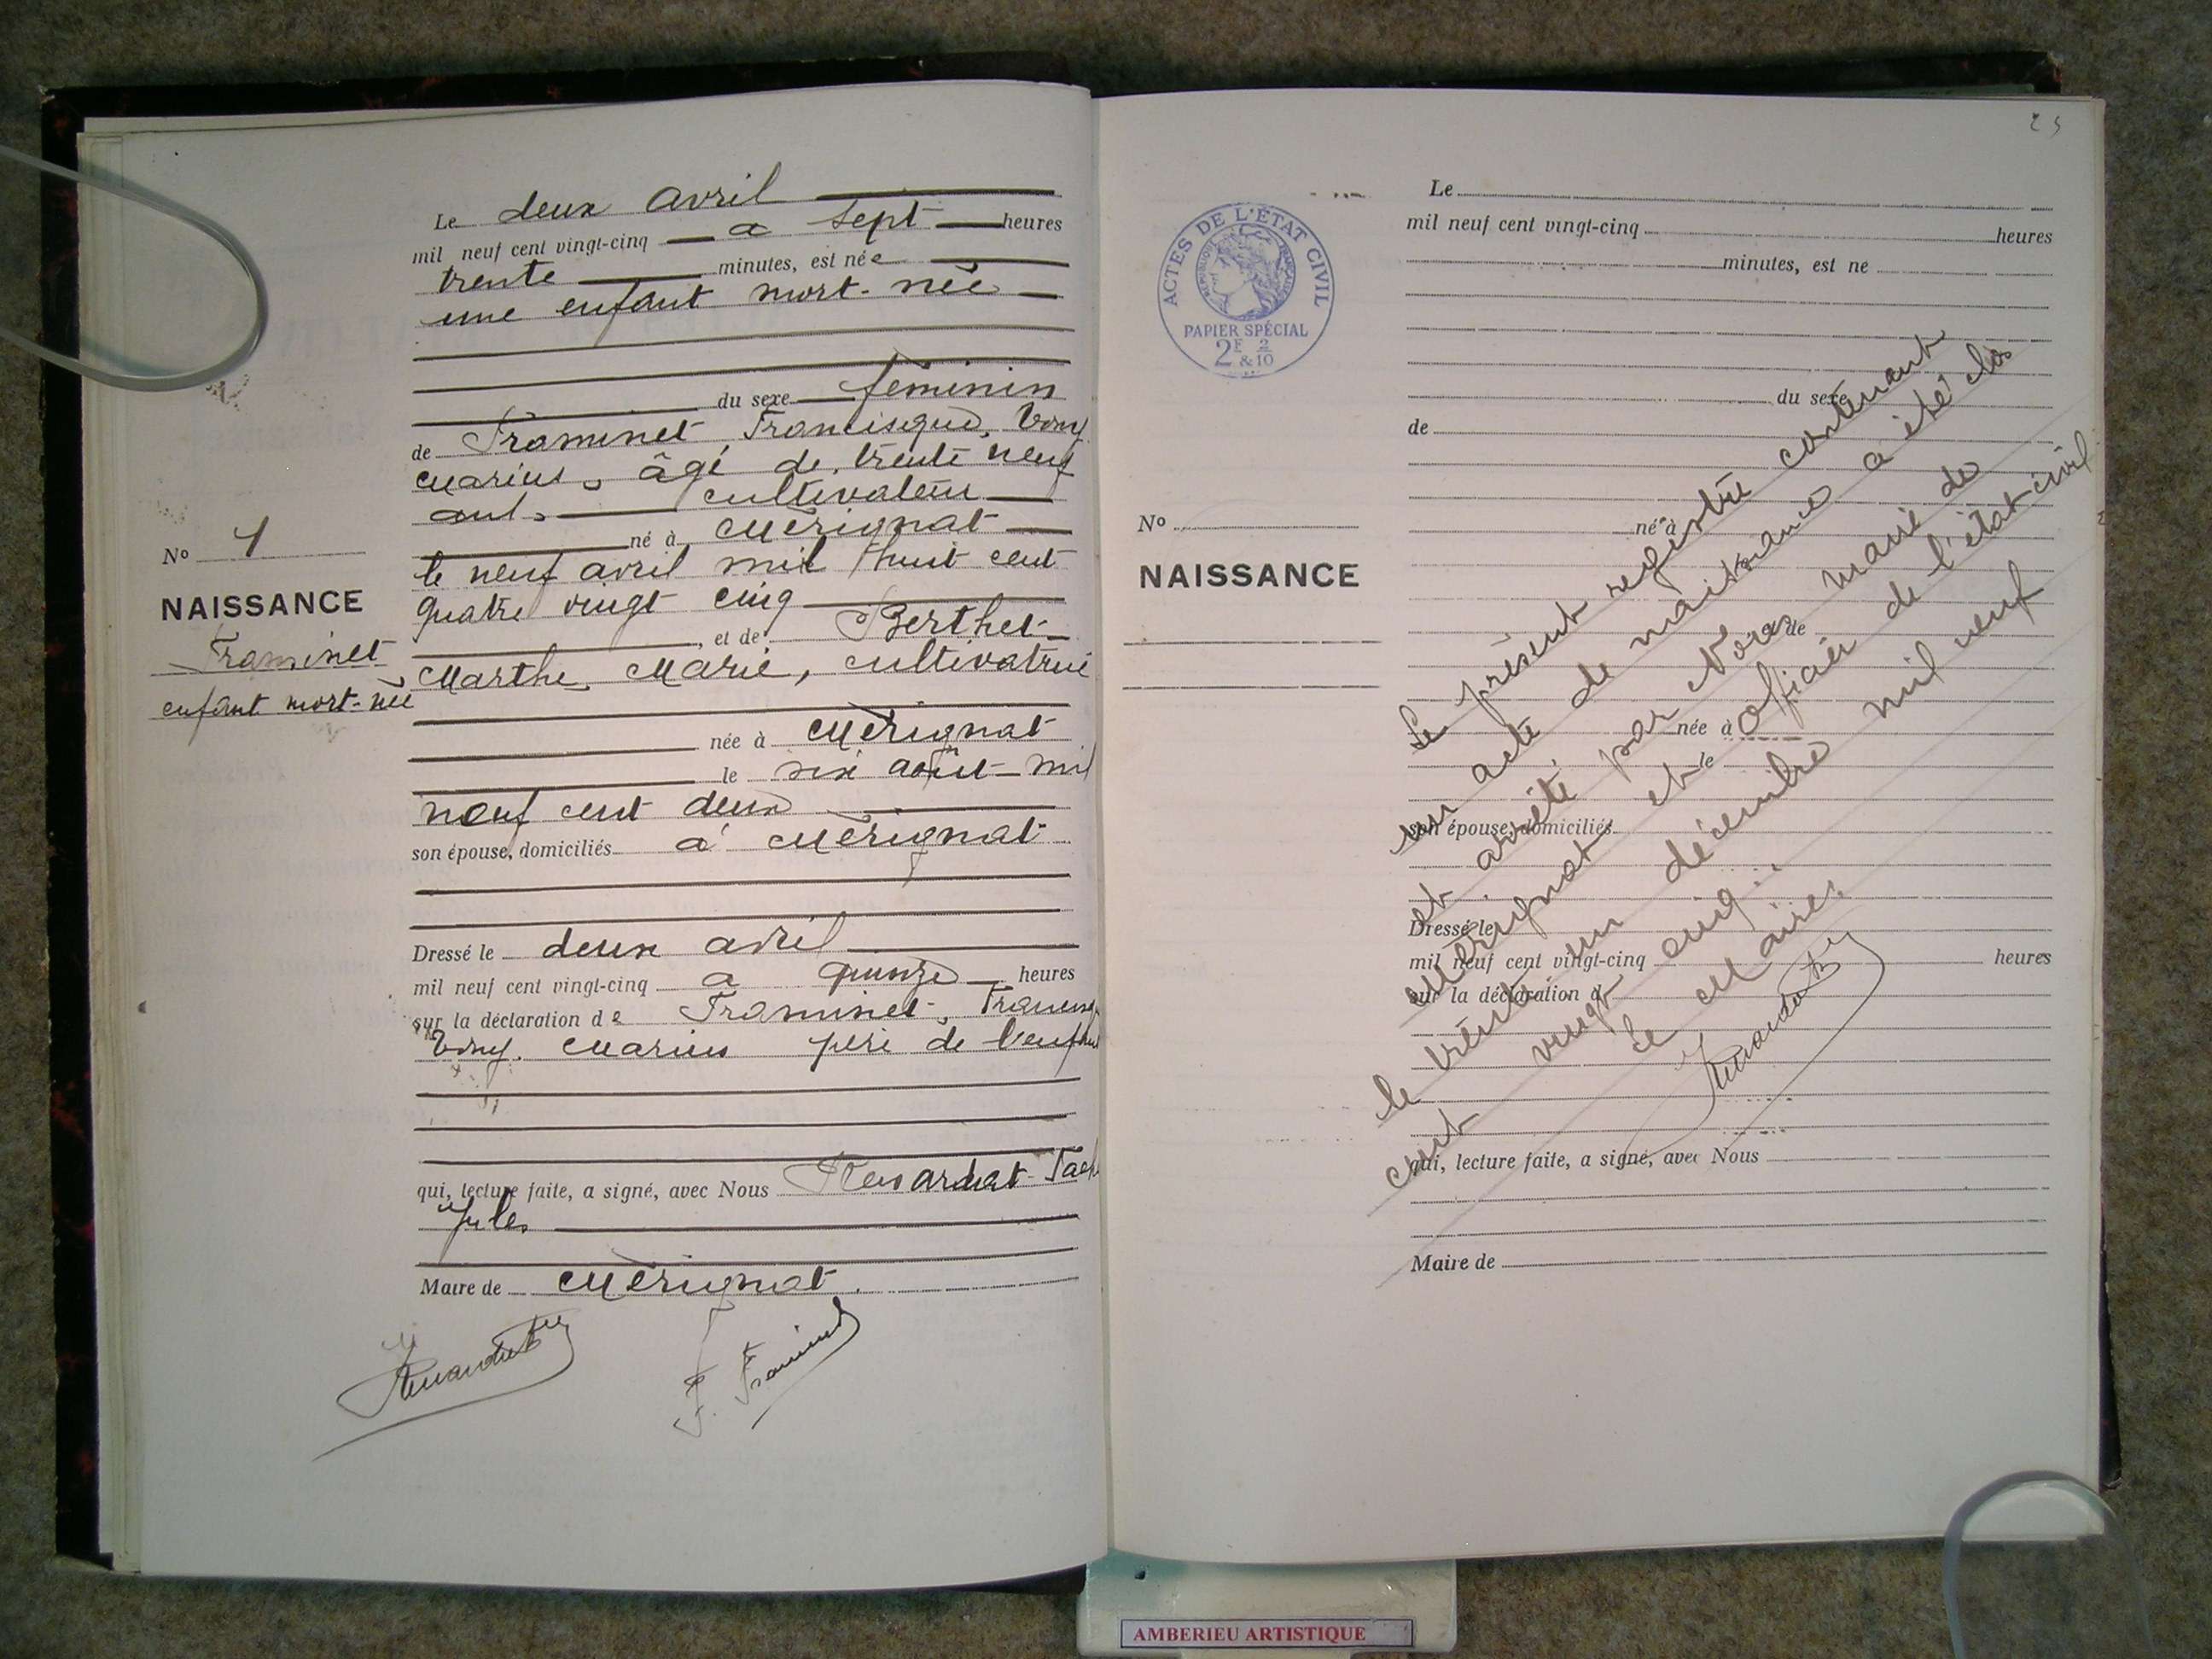 Le deux avril
mil neuf cent vingt-cinq à sept heures
trente minutes, est née
une enfant mort-née
du sexe féminin
de Framinet Francisque, Tony
Marius, âgé de trente neuf
ans, cultivateur
né à Mérignat
le neuf avril mil huit cent
quatre vingt cinq
, et de Berthet
Marthe, Marie, cultivatrice
née à Mérignat
le six août mil
neuf cent deux
son épouse, domiciliés à Mérignat
Dressé le deux avril
mil neuf cent vingt-cinq à quinze heures
sur la déclaration de Framinet, Francisq
Tony Marius père de l'enfant
qui, lecture faite, a signé, avec Nous Renardat
Jules
Maire de Mérignat.
F. Framinet
No 1
NAISSANCE
Framinet
enfant mort-née
25
ACTES DE L'ÉTAT CIVIL
RÉPUBLIQUE FRANÇAISE
PAPIER SPÉCIAL
2F 2
& 10
No
NAISSANCE
Le
mil neuf cent vingt-cinq heures
minutes, est né
du sexe
de
né à
et de
née à
le
son épouse, domiciliés
Dressé le
mil neuf cent vingt-cinq heures
sur la déclaration d
qui, lecture faite, a signé, avec Nous
Maire de
Le présent registre contenant
un acte de naissance a été clos
et arrêté par Nous maire de
Mérignat et officier de l'état civil
le trente un décembre mil neuf
cent vingt cinq.
Le Maire,
AMBERIEU ARTISTIQUE